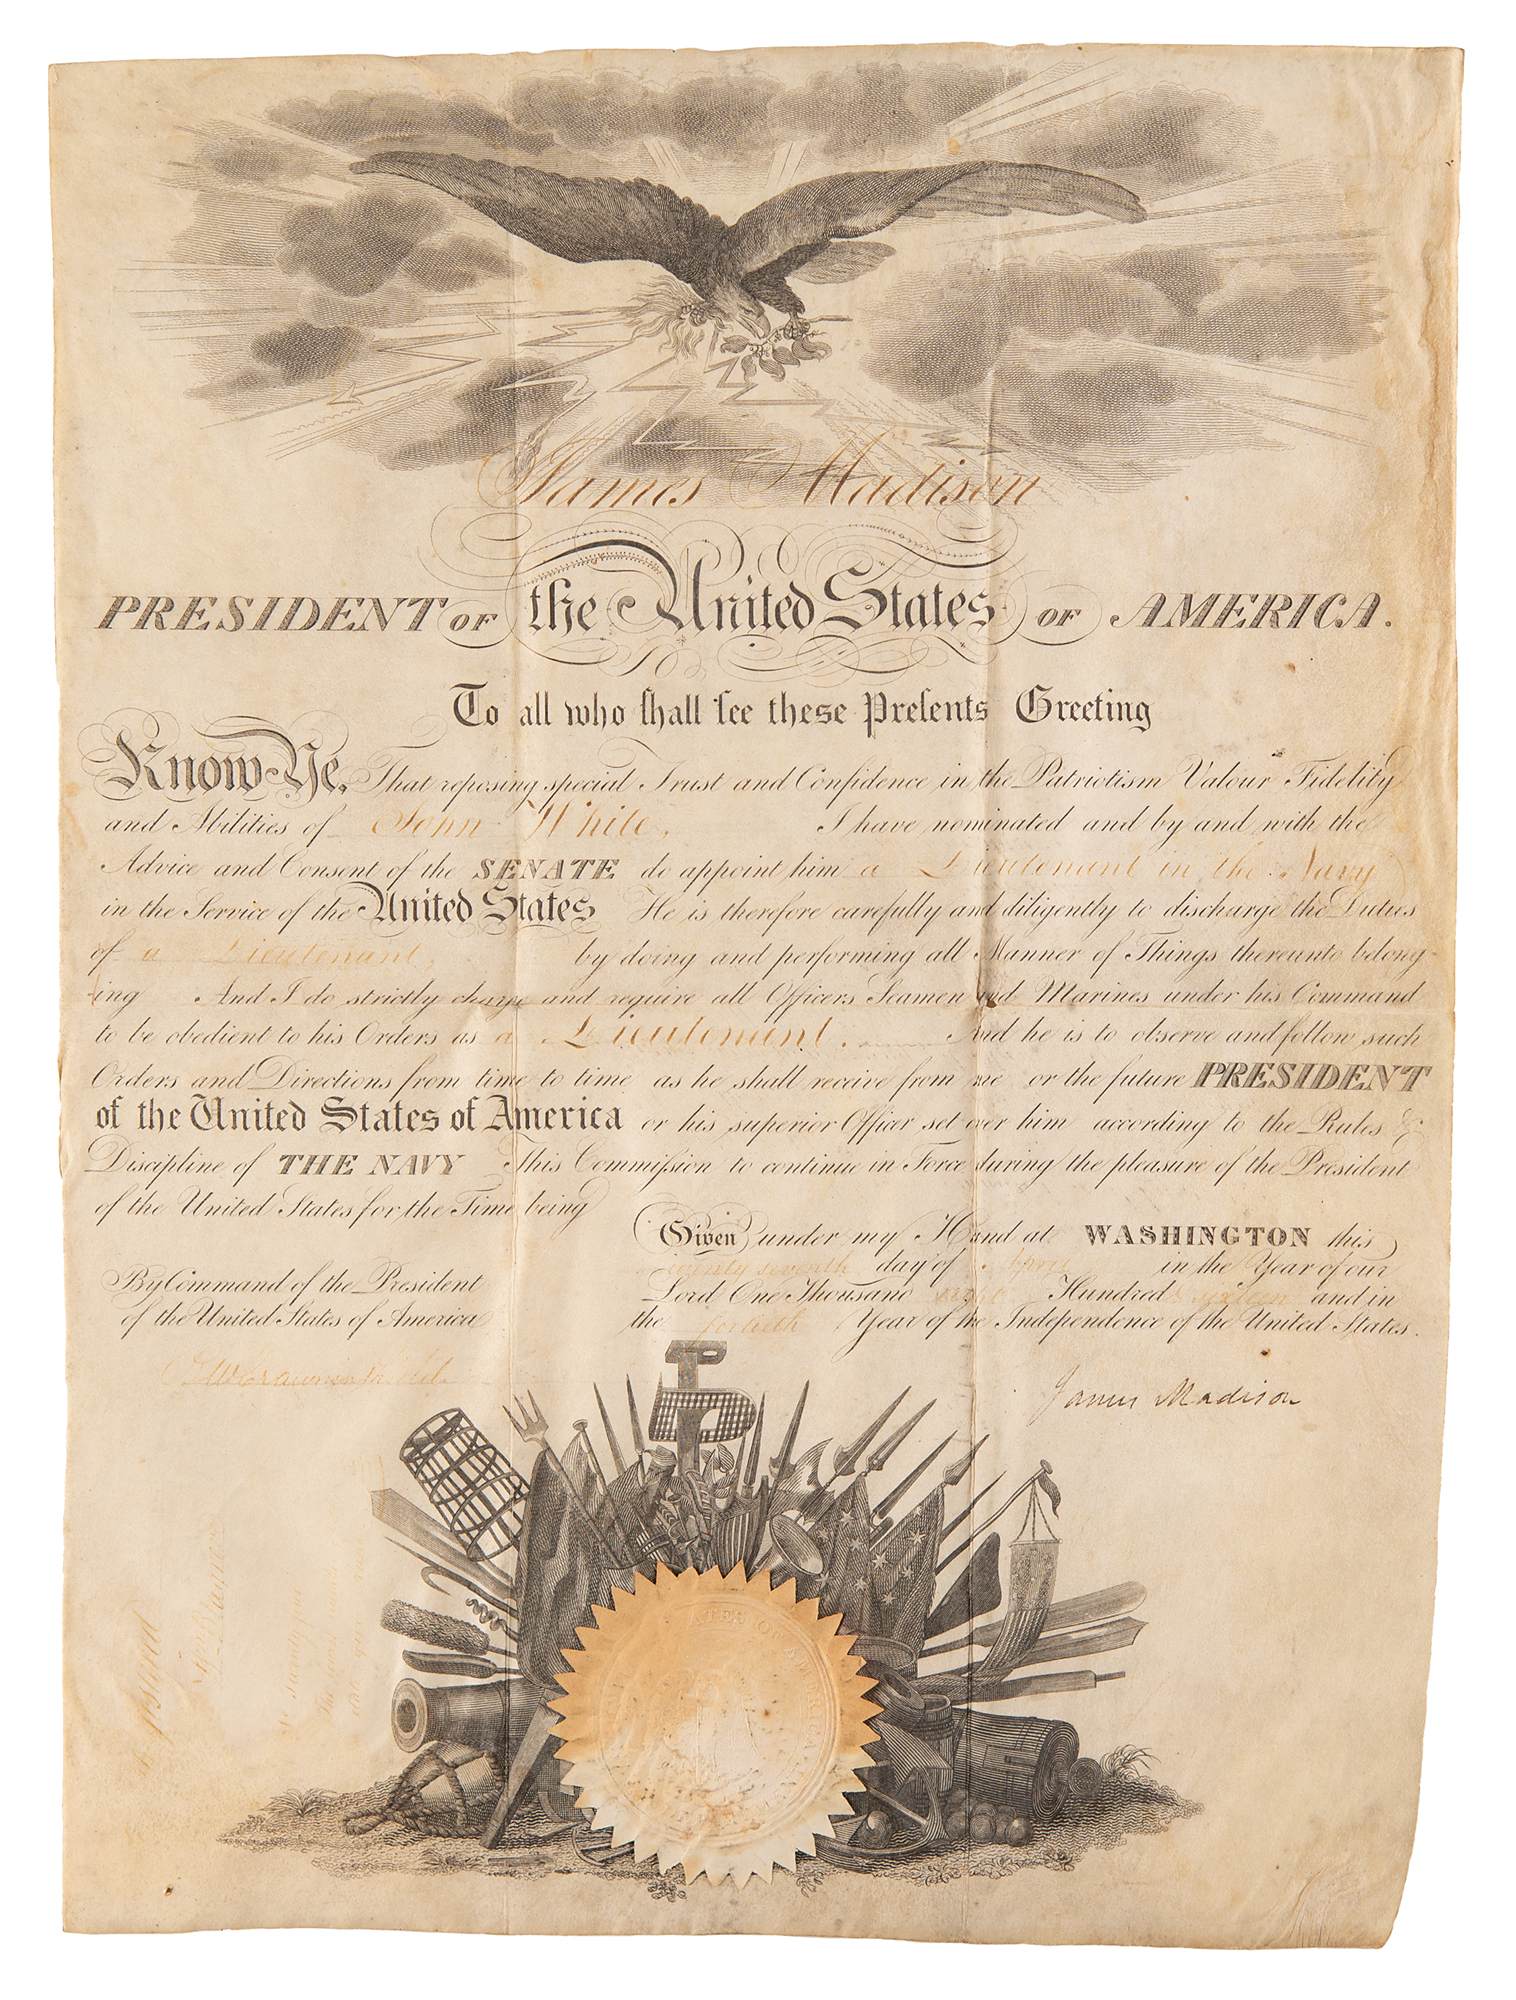 James Madison
PRESIDENT OF the United States OF AMERICA.
To all who ſhall ſee these Preſents Greeting
Know Ye, That reposing special Trust and Confidence in the Patriotism Valour Fidelity
and Abilities of John White, I have nominated and by and with the
Advice and Consent of the SENATE do appoint him a Lieutenant in the Navy
in the Service of the United States He is therefore carefully and diligently to discharge the Duties
of a Lieutenant, by doing and performing all Manner of Things thereunto belong-
ing And I do strictly charge and require all Officers Seamen and Marines under his Command
to be obedient to his Orders as a Lieutenant. And he is to observe and follow such
Orders and Directions from time to time as he shall receive from me or the future PRESIDENT
of the United States of America or his superior Officer set over him according to the Rules &
Discipline of THE NAVY This Commiſsion to continue in Force during the pleasure of the President
of the United States for the Time being
Given under my Hand at WASHINGTON this
twenty seventh day of April in the Year of our
Lord One Thousand eight Hundred & sixteen and in
the fortieth Year of the Independence of the United States.
By Command of the President
of the United States of America
James Madison
Registered